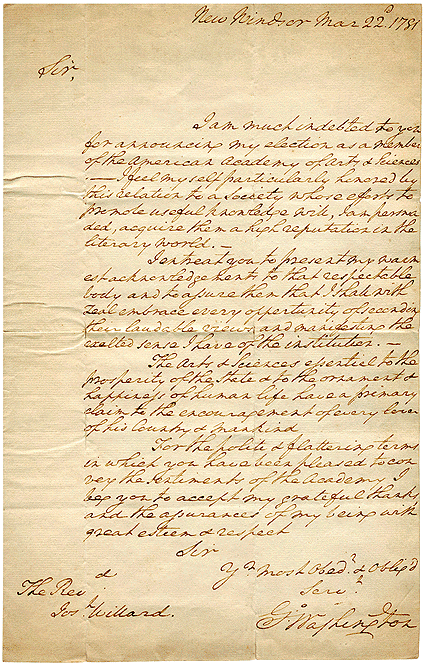 New Windsor Mar 22d. 1781
Sir,
I am much indebted to you
for announcing my election as a member
of the American Academy of Arts & Sciences
. — I feel my self particularly honored by
this relation to a Society whose efforts to
promote useful knowledge will, I am persua
ded, acquire them a high reputation in the
literary world. —
I entreat you to present my warm
est acknowledgements to that respectable
body and to assure them that I shall with
zeal embrace every oppertunity of seconding
their laudable views and manifesting the
exalted sense I have of the institution. —
The Arts & Sciences essential to the
prosperity of the State & to the ornament &
happiness of human life have a primary
claim to the encouragement of every lover
of his Country & mankind
For the polite & flattering terms
in which you have been pleased to con
vey the Sentiments of the Academy, I
beg you to accept my grateful thanks
and the assurances of my being with
great esteem & respect
Sir
Yr. most Obedt. & Oblig'd
Servt.
The Revd
Josh. Willard.
Go. Washington